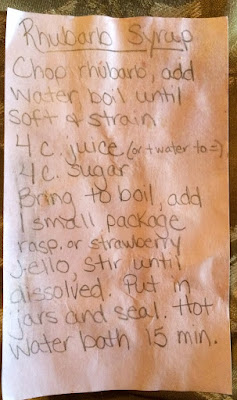 Rhubarb Syrup
Chop rhubarb, add
water, boil until
soft & strain.
4 c. juice (or + water to =)
4 c. sugar
Bring to boil, add
1 small package
rasp. or strawberry
jello, stir until
dissolved. Put in
jars and seal. Hot
water bath 15 min.